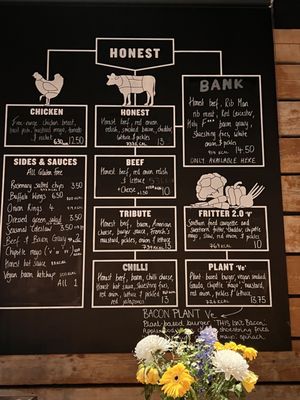 HONEST
CHICKEN
Free-range chicken breast,
basil pesto, mustard mayo, tomato
& rocket 12.50
HONEST
Honest beef, red onion
relish, smoked bacon, cheddar,
lettuce & pickle
13
BANK
Honest beef, Rib Man
rib meat, Red Leicester,
Holy F** bacon gravy,
shoestring fries,
white
onion
14.50
ONLY AVAILABLE HERE
SIDES & SAUCES
All Gluten free
Rosemary salted chips 3.50
Buffalo Wings 6.50
Onion Rings 4
Dressed green salad 3.50
Seasonal Coleslaw 3.50
Beef & Bacon Gravy
Chipotle mayo
Honest hot sauce
Vegan bacon ketchup
All 1
BEEF
Honest beef, red onion
relish & lettuce
+ Cheese 10
TRIBUTE
Honest beef, bacon, American
cheese, burger sauce, French's
mustard, pickles, onion & lettuce
13
FRITTER 2.0 'v'
Smoked
cauliflower & sweetcorn
fritter, cheddar, chipotle
mayo, slaw, red onion & pickles
10
CHILLI
Honest beef, chilli cheese,
Honest hot sauce, shoestring fries,
red onion, lettuce & pickled
red jalapenos 13
PLANT 'Ve'
Plant-based burger, vegan smoked
Gouda, chipotle 'mayo', mustard,
red onion, pickles & lettuce
13.75
BACON PLANT Ve
Plant-based burger THIS Isn't Bacon
shoestring fries
mayo, spinach